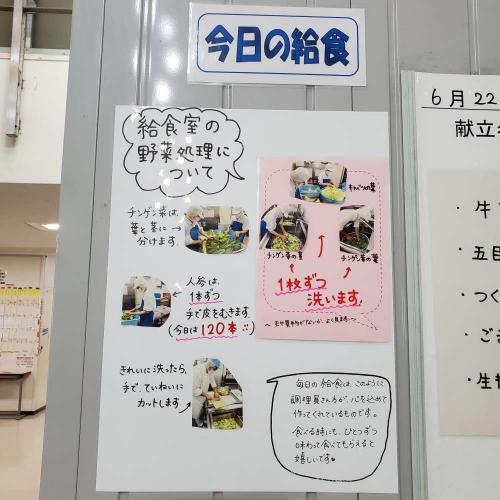 今日の給食
給食室の
野菜処理に
ついて
チンゲン菜は、
葉と茎に→
分けます。
キャベツの葉
チンゲン菜の茎
チンゲン菜の葉
1枚ずつ
洗います!
人参は、
1本ずつ
手で皮をむきます。
(今日は120本
きれいに洗ったら、
手で、ていねいに
カットします
毎日の給食は、このように
調理員さん方が、心を込めて
作ってくれているものです。
食べる時にも、ひとつずつ
味わって食べてもらえると
嬉しいです♥
6月22
献立
・牛
・五目
・つく
・ご
・生